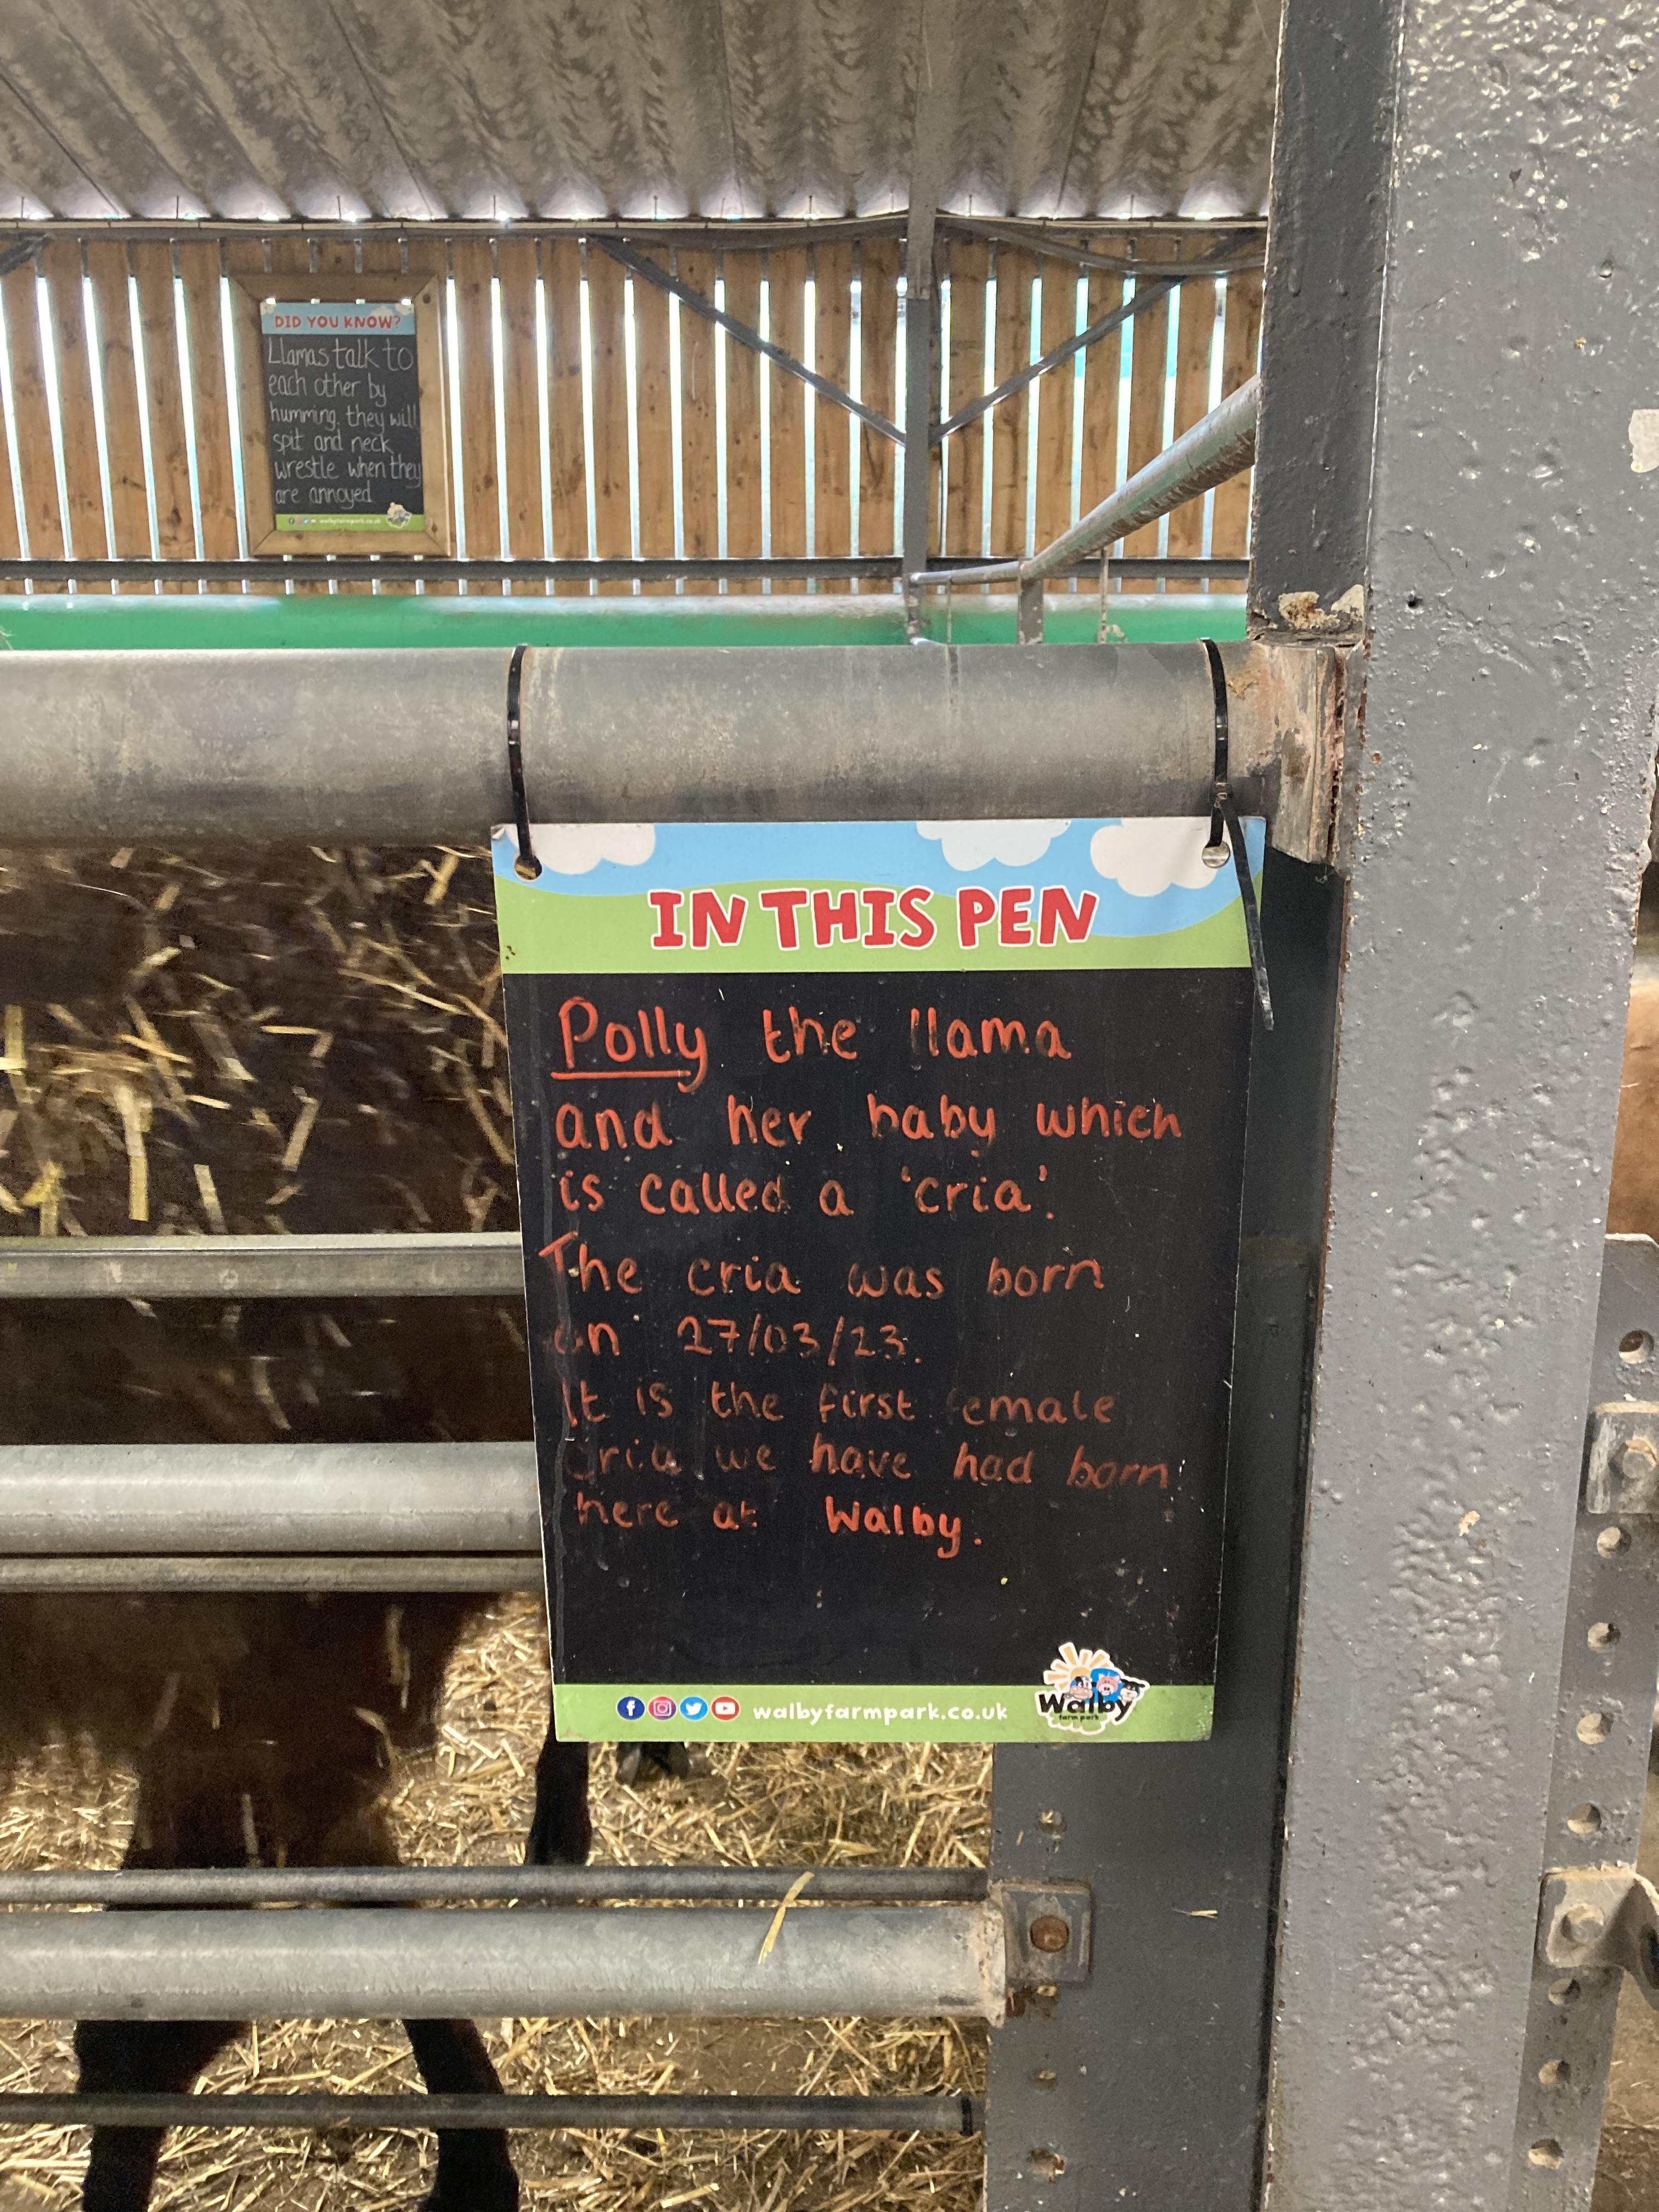 DID YOU KNOW?
Llamas talk to
each other by
humming, they will
spit and neck
wrestle when they
are annoyed
walbyfarmpark.co.uk
IN THIS PEN
Polly the llama
and her baby which
is called a 'cria'.
The cria was born
on 27/03/23.
It is the first female
cria we have had born
here at Walby.
walbyfarmpark.co.uk
Walby
farm park